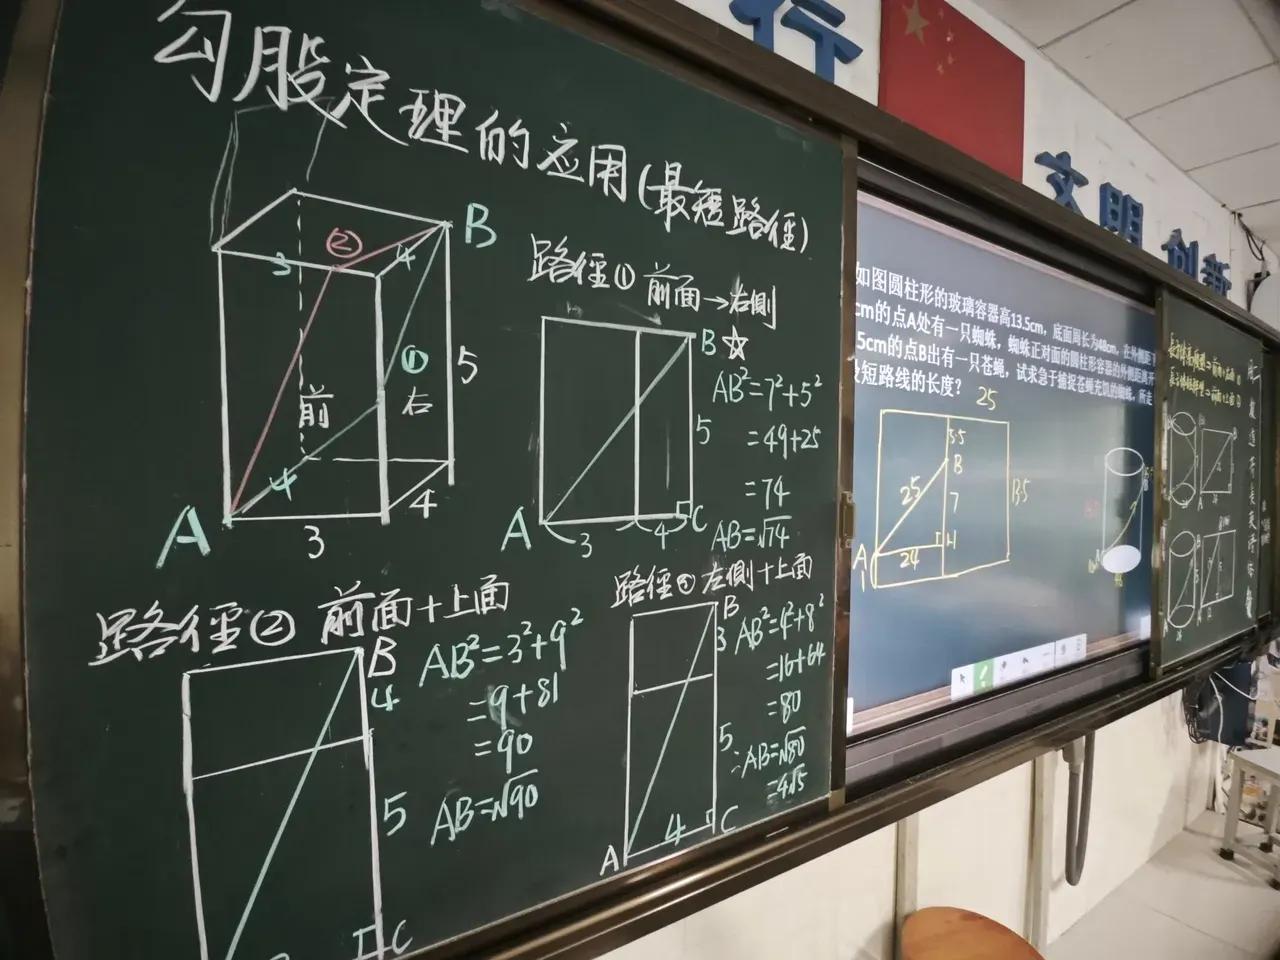 勾股定理的应用(最短路径)
B
②
3
4
①
5
前
右
A
4
4
3
路径① 前面→右侧
B ☆
AB²=7²+5²
=49+25
=74
AB=√74
5
A
3
4
C
路径② 前面+上面
B
4
5
C
AB²=3²+9²
=9+81
=90
AB=√90
路径③ 左侧+上面
B
3
5
A
4
C
AB²=4²+8²
=16+64
=80
∴AB=√80
=4√5
行
文明
创新
如图圆柱形的玻璃容器高13.5cm，底面周长为48cm，在外侧距下
cm的点A处有一只蜘蛛，蜘蛛正对面的圆柱形容器的外侧距离开
5cm的点B出有一只苍蝇，试求急于捕捉苍蝇充饥的蜘蛛，所走
最短路线的长度？
25
5.5
B
25
7
13.5
A
24
H
1